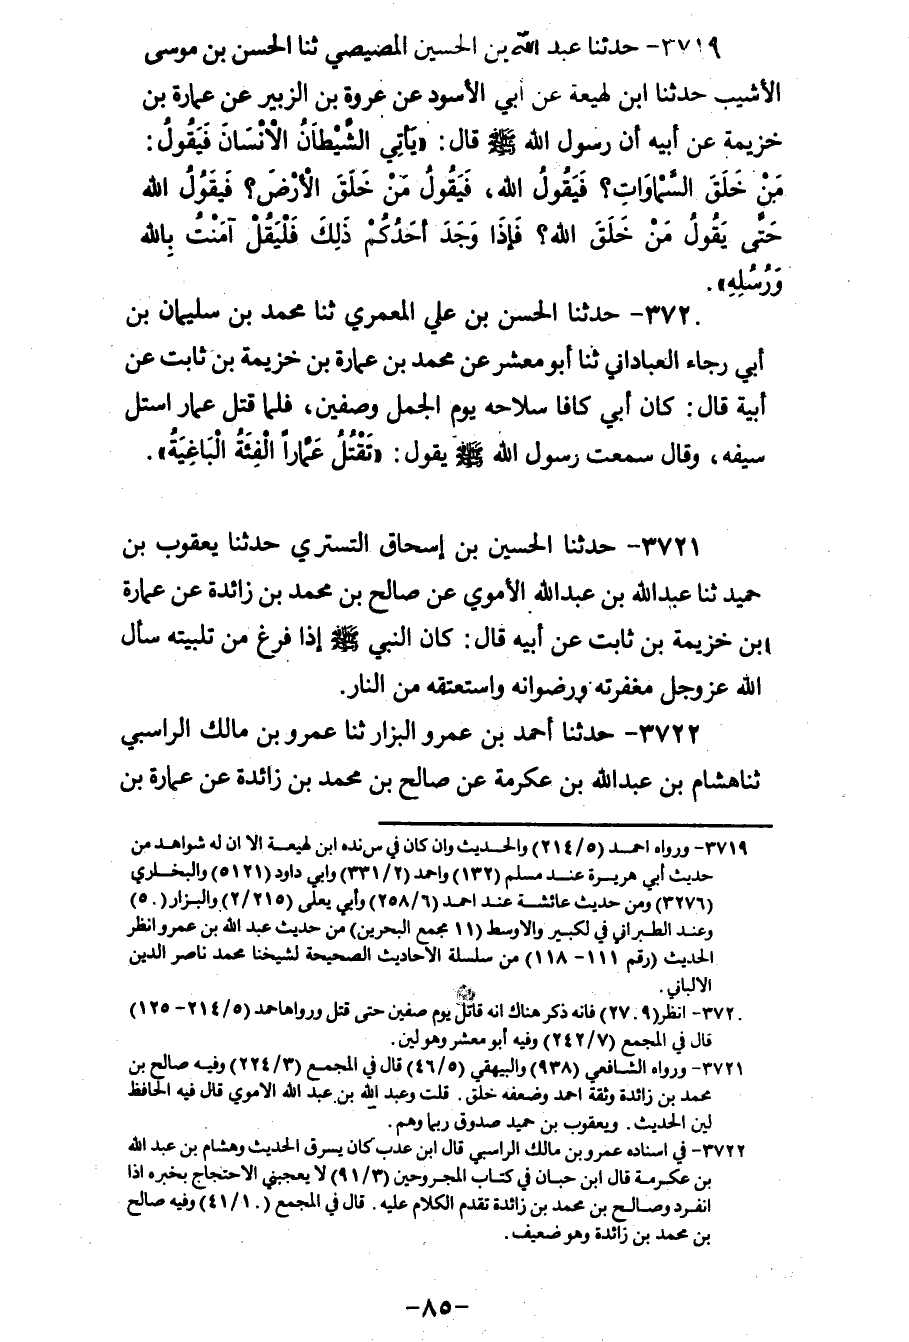 ٣٧١٩- حدثنا عبد الله بن الحسين المصيصي ثنا الحسن بن موسى
الأشيب حدثنا ابن لهيعة عن أبي الأسود عن عروة بن الزبير عن عمارة بن
خزيمة عن أبيه أن رسول الله ﷺ قال: «يَأتِي الشَّيْطَانُ الْانْسَانَ فَيَقُولُ:
مَنْ خَلَقَ السَّمَاوَاتِ؟ فَيَقُولُ الله، فَيَقُولُ مَنْ خَلَقَ الْارْضَ؟ فَيَقُولُ الله
حَتَّى يَقُولُ مَنْ خَلَقَ الله؟ فَإذَا وَجَدَ أحَدُكُمْ ذَلِكَ فَلْيَقُلْ آمَنْتُ بِالله
وَرُسُلِهِ».
٣٧٢٠- حدثنا الحسن بن علي المعمري ثنا محمد بن سليمان بن
أبي رجاء العباداني ثنا أبو معشر عن محمد بن عمارة بن خزيمة بن ثابت عن
أبية قال: كان أبي كافا سلاحه يوم الجمل وصفين، فلما قتل عمار استل
سيفه، وقال سمعت رسول الله ﷺ يقول: «تَقْتُلُ عَمَّاراً الْفِئَةُ الْبَاغِيَةُ».
٣٧٢١- حدثنا الحسين بن إسحاق التستري حدثنا يعقوب بن
حميد ثنا عبدالله بن عبدالله الأموي عن صالح بن محمد بن زائدة عن عمارة
ابن خزيمة بن ثابت عن أبيه قال: كان النبي ﷺ إذا فرغ من تلبيته سأل
الله عز وجل مغفرته ورضوانه واستعتقه من النار.
٣٧٢٢- حدثنا أحمد بن عمرو البزار ثنا عمرو بن مالك الراسبي
ثنا هشام بن عبدالله بن عكرمة عن صالح بن محمد بن زائدة عن عمارة بن
٣٧١٩- ورواه احمد (٢١٤/٥) والحديث وان كان في سنده ابن لهيعة الا ان له شواهد من
حديث أبي هريرة عند مسلم (١٣٢) واحمد (٣٣١/٢) وابي داود (٥١٢١) والبخاري
(٣٢٧٦) ومن حديث عائشة عند احمد (٢٥٨/٦) وأبي يعلى (٢/٢١٥) والبزار (٥٠)
وعند الطبراني في لكبير والاوسط (١١ مجمع البحرين) من حديث عبد الله بن عمرو انظر
الحديث (رقم ١١١- ١١٨) من سلسلة الاحاديث الصحيحة لشيخنا محمد ناصر الدين
الالباني.
٣٧٢٠- انظر (٢٧٠٩) فانه ذكر هناك انه قاتل يوم صفين حتى قتل ورواه احمد (٢١٤/٥- ١٢٥)
قال في المجمع (٢٤٢/٧) وفيه أبو معشر وهو لين.
٣٧٢١- ورواه الشافعي (٩٣٨) والبيهقي (٤٦/٥) قال في المجمع (٢٢٤/٣) وفيه صالح بن
محمد بن زائدة وثقة احمد وضعفه خلق. قلت وعبد الله بن عبد الله الاموي قال فيه الحافظ
لين الحديث. ويعقوب بن حميد صدوق ربما وهم.
٣٧٢٢- في اسناده عمرو بن مالك الراسبي قال ابن عدب كان يسرق الحديث وهشام بن عبد الله
بن عكرمة قال ابن حبان في كتاب المجروحين (٩١/٣) لا يعجبني الاحتجاج بخبره اذا
انفرد وصالح بن محمد بن زائدة تقدم الكلام عليه. قال في المجمع (٤١/١٠) وفيه صالح
بن محمد بن زائدة وهو ضعيف.
-٨٥-